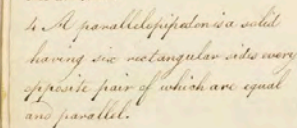 4 A parallelopipedon is a solid
having six rectangular sides every
opposite pair of which are equal
and parallel.